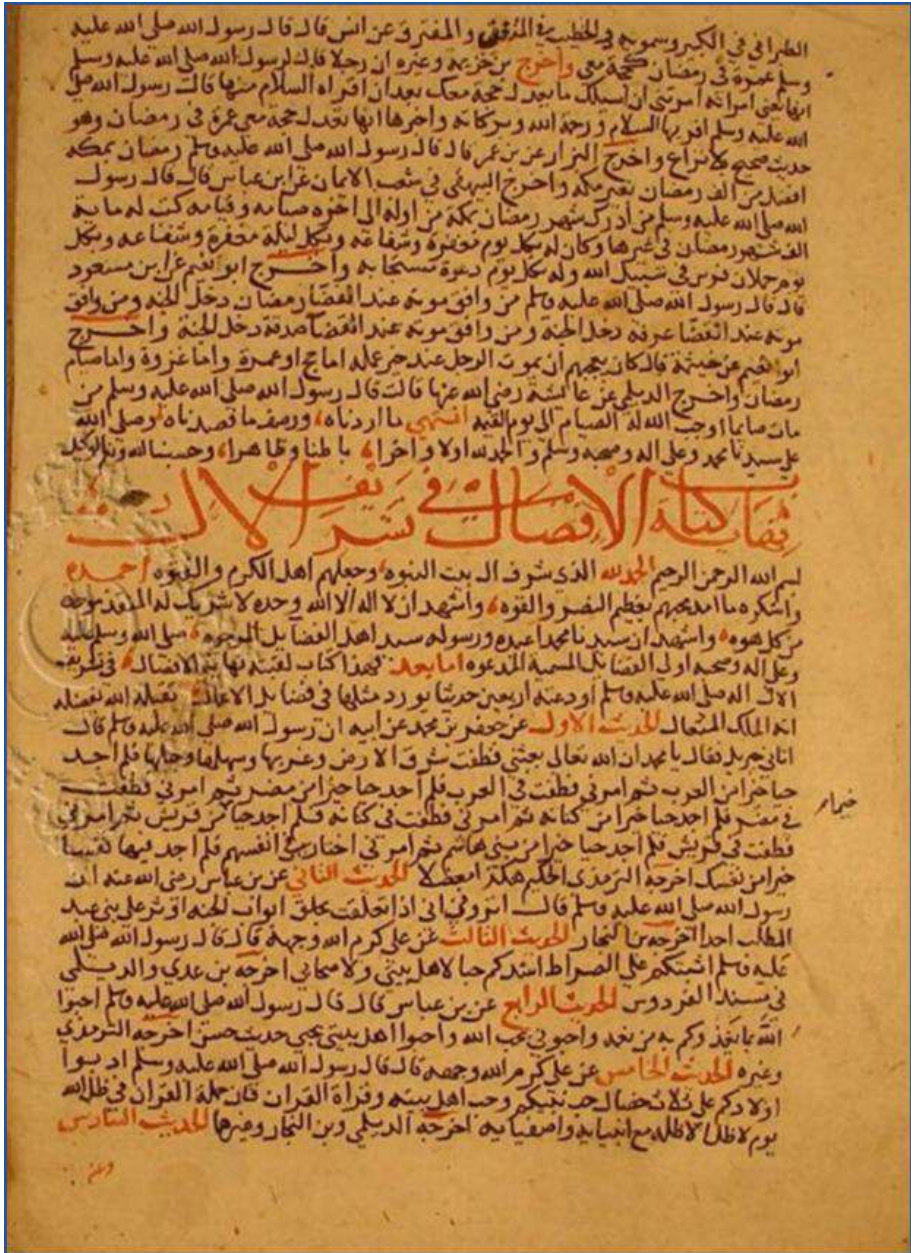 الطبراني في الكبير وسمويه والخطيب في المتفق والمفترق عن انس قال قال رسول الله صلى الله عليه
وسلم عمرة في رمضان كحجة معي واخرج بن خزيمة وغيره ان رجلا قال لرسول الله صلى الله عليه وسلم
انها يعني امراته امرتني ان اسيلك ما يعدل حجة معك بعد ان اقراه السلام منها قالت رسول الله صلى
الله عليه وسلم اقريها السلام ورحمة الله وبركاته واخبرها انها تعدل حجة معي عمرة في رمضان وهو
حديث صحيح لا نزاع واخرج البزار عن بن عمر قال قال رسول الله صلى الله عليه وسلم رمضان بمكه
افضل من الف رمضان بغير مكه واخرج البيهقي في شعب الايمان عن ابن عباس قال قال رسول
الله صلى الله عليه وسلم من ادرك شهر رمضان بمكة من اوله الى اخره صيامه وقيامه كتب له ماية
الف شهر رمضان في غيرها وكان له بكل يوم مغفرة وشفاعة وبكل ليلة مغفرة وشفاعه وبكل
يوم حملان فرس في سبيل الله وله بكل يوم دعوة مستجابه واخرج ابو نعيم عن ابن مسعود
قال قال رسول الله صلى الله عليه وسلم من وافق موته عند انقضا رمضان دخل الجنه ومن وافق
موته عند انقضا عرفه دخل الجنة ومن وافق موته عند انقضا صدقة دخل الجنة واخرج
ابو نعيم عن خيثمة قال كان يعجبهم ان يموت الرجل عند خير عمله اما حج او عمرة واما غزوة واما صيام
رمضان واخرج الديلمي عن عايشة رضي الله عنها قالت قال رسول الله صلى الله عليه وسلم من
مات صايما اوجب الله له الصيام الى يوم القيمة انتهى ما اردناه ورصف ما قصدناه وصلى الله
على سيدنا محمد وعلى اله وصحبه وسلم والحمد لله اولا واخرا باطنا وظاهرا وحسبنا الله ونعم الوكيل
كتاب نهاية الافضال في تشريف الال
بسم الله الرحمن الرحيم الحمد لله الذي شرف ال بيت النبوه وجعلهم اهل الكرم والفتوه احمده
واشكره ما امد محبهم بعظم النصر والقوه واشهد ان لا اله الا الله وحده لا شريك له المنقذ موحده
من كل هوه واشهد ان سيدنا محمدا عبده ورسوله سيد اهل الفضايل المرجوه صلى الله وسلم عليه
وعلى اله وصحبه اولي الفضايل السمية المدعوه اما بعد فهذا كتاب لقبته نهاية الافضال في تشريف
الال اله صلى الله عليه وسلم اودعته اربعين حديثا يورد مثلها في فضايل الاعمال تقبله الله بفضله
انه الملك المتعال الحديث الاول عن جعفر بن محمد عن ابيه ان رسول الله صلى الله عليه وسلم قال
اتاني جبريل فقال يا محمد ان الله تعالى بعثني فطفت شرق الارض وغربها وسهلها وجبلها فلم اجد
حيا خيرا من العرب ثم امرني فطفت في العرب فلم اجد حيا خيرا من مضر ثم امرني فطفت
في مضر فلم اجد حيا خيرا من كنانة ثم امرني فطفت في كنانة فلم اجد حيا من قريش ثم امرني
خيرا
فطفت في قريش فلم اجد حيا خيرا من بني هاشم ثم امرني اختار في انفسهم فلم اجد فيها نفسا
خيرا من نفسك اخرجه الترمذي الحكيم هكذا معضلا الحديث الثاني عن بن عباس رضي الله عنه ان
رسول الله صلى الله عليه وسلم قال اتروني اني اذا تعلقت بحلق ابواب الجنه اوثر على بني عبد
المطلب احدا اخرجه بن النجار الحديث الثالث عن علي كرم الله وجهه قال قال رسول الله صلى الله
عليه وسلم اثبتكم على الصراط اشدكم حبا لاهل بيتي ولاصحابي اخرجه بن عدي والديلمي
في مسند الفردوس الحديث الرابع عن بن عباس قال قال رسول الله صلى الله عليه وسلم احبوا
الله بما يغذوكم به من نعمه واحبوني بحب الله واحبوا اهل بيتي بحبي حديث حسن اخرجه الترمذي
وغيره الحديث الخامس عن علي كرم الله وجهه قال قال رسول الله صلى الله عليه وسلم ادبوا
اولادكم على ثلاث خصال حب نبيكم وحب اهل بيته وقراة القران فان حملة القران في ظل الله
يوم لا ظل الا ظله مع انبيايه واصفيايه اخرجه الديلمي وبن النجار وغيرهما الحديث السادس
وعن